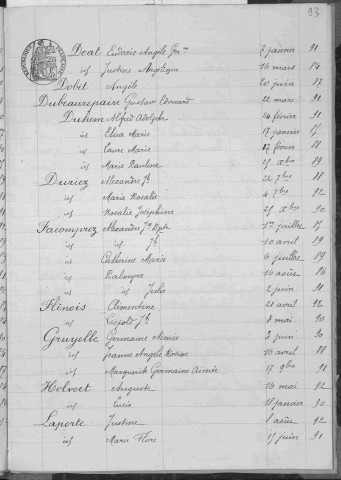 93
Doal Eudoxie Angèle Jne 7 janvier 91
id Justine Angélique 16 mars 84
Dobit Angèle 20 juin 87
Dubeaurepaire Gustave Edouard 22 mars 91
Duhem Alfred Adolphe 24 février 91
id Elisa Marie 17 janvier 85
id Laure Marie 17 février 88
id Marie Pauline 25 Xbre 89
Duriez Alexandre Jh 22 7bre 88
id Marie Rosalie 4 7bre 82
id Rosalie Joséphine 25 Xbre 90
Facomprez Alexandre Jn Bpte 1er juillet 85
id id Jh 10 avril 89
id Catherine Marie 6 juillet 89
id Palmyre 16 août 86
id id Julie 2 juin 91
Flinois Clémentine 21 avril 92
id Léopold Jh 8 mai 90
Gruyelle Germaine Aimée 3 juin 90
id Jeanne Angèle 16 avril 88
id Marguerite Germaine Aimée 17 9bre 91
Holvoet Auguste 16 mai 92
id Lucie 18 janvier 90
Laporte Justine 1 août 92
id Marie Flore 15 juin 91